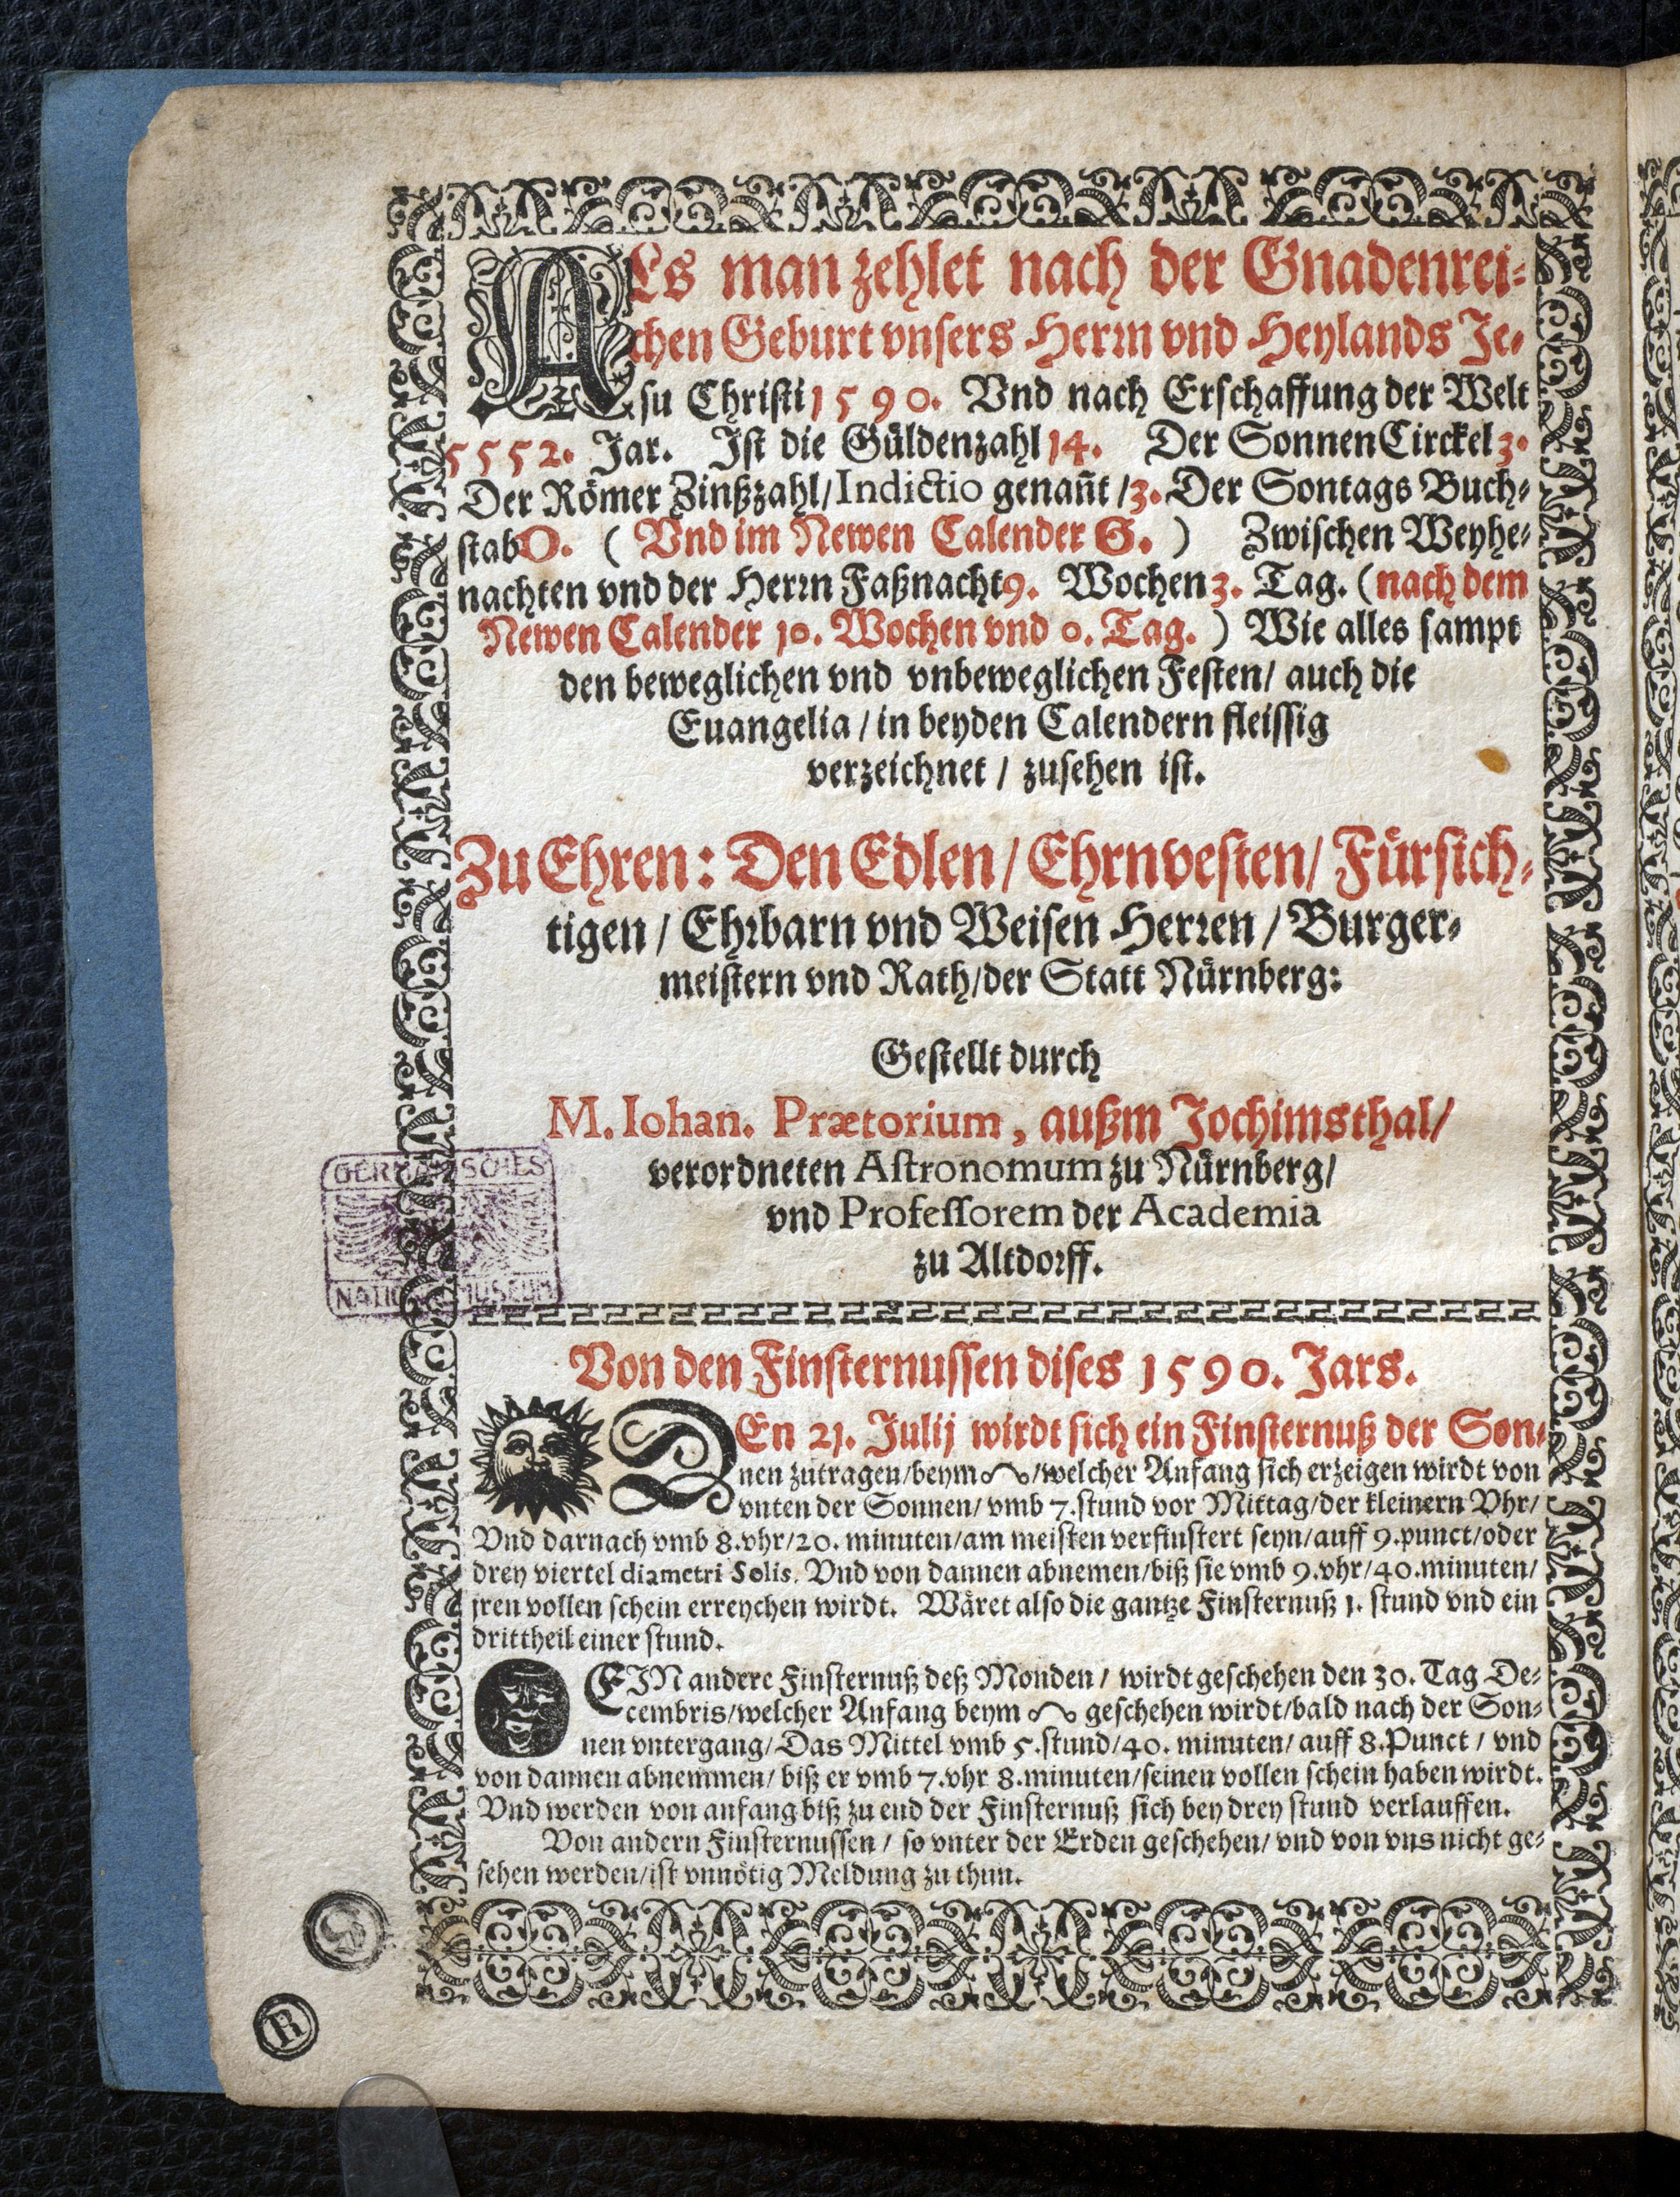 ALs man zehlet nach der Gnadenrei⸗
chen Geburt vnsers Herrn vnd Heylands Je⸗
su Christi 1590. Vnd nach Erschaffung der Welt
5552. Jar. Ist die Güldenzahl 14. Der SonnenCirckel 3.
Der Römer Zinßzahl/ Indictio genañt / 3. Der Sontags Buch⸗
stab D. ( Vnd im Newen Calender G. ) Zwischen Weyhe⸗
nachten vnd der Herrn Faßnacht 9. Wochen 3. Tag. (nach dem
Newen Calender 10. Wochen vnd 0. Tag. ) Wie alles sampt
den beweglichen vnd vnbeweglichen Festen/ auch die
Euangelia / in beyden Calendern fleissig
verzeichnet / zusehen ist.
Zu Ehren: Den Edlen/ Ehrnvesten/ Fürsich⸗
tigen / Ehrbarn vnd Weisen Herren / Burger⸗
meistern vnd Rath/der Statt Nürnberg:
Gestellt durch
M. Iohan. Prætorium, außm Jochimsthal/
verordneten Astronomum zu Nürnberg/
vnd Professorem der Academia
zu Altdorff.
GERMANISCHES
NATIONALMUSEUM
Von den Finsternussen dises 1590. Jars.
DEn 21. Julij wirdt sich ein Finsternuß der Son⸗
nen zutragen/beym ☊/welcher Anfang sich erzeigen wirdt von
vnten der Sonnen/ vmb 7.stund vor Mittag/der kleinern Vhr/
Vnd darnach vmb 8.vhr/20. minuten/am meisten verfinstert seyn/auff 9.punct/oder
drey viertel diametri Solis. Vnd von dannen abnemen/biß sie vmb 9.vhr/40.minuten/
jren vollen schein erreychen wirdt. Wäret also die gantze Finsternuß 1. stund vnd ein
drittheil einer stund.
EIN andere Finsternuß deß Monden / wirdt geschehen den 30. Tag De⸗
cembris/welcher Anfang beym ☊ geschehen wirdt/bald nach der Son⸗
nen vntergang/ Das Mittel vmb 5.stund/40. minuten/ auff 8.Punct / vnd
von dannen abnemmen/ biß er vmb 7.vhr 8.minuten/seinen vollen schein haben wirdt.
Vnd werden von anfang biß zu end der Finsternuß sich bey drey stund verlauffen.
Von andern Finsternussen / so vnter der Erden geschehen/ vnd von vns nicht ge⸗
sehen werden/ist vnnötig Meldung zu thun.
R